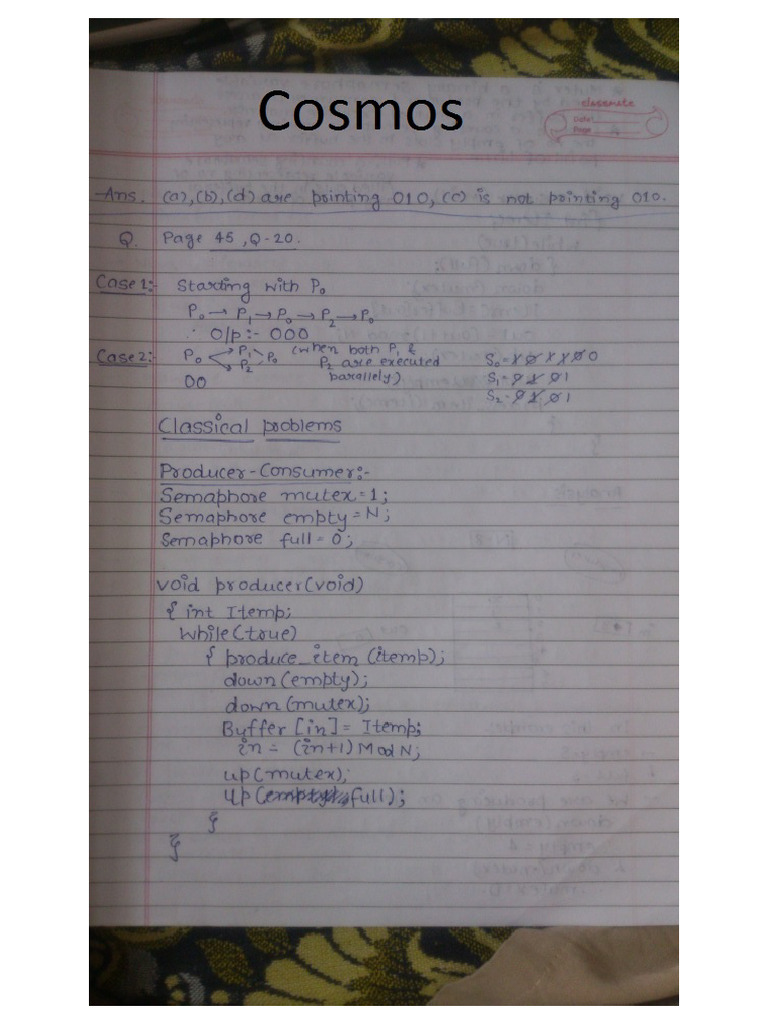 Cosmos
classmate
Date
Page
Ans. (a), (b), (d) are printing 010, (c) is not printing 010.
Q. Page 45, Q-20.
Case 1:- Starting with P₀
P₀ → P₁ → P₀ → P₂ → P₀
∴ O/p :- 000
Case 2:- P₀ P₁ P₂ P₀ (when both P₁ & P₂ are executed parallely)
00
S₀ = 1 0 1 1 0 0
S₁ = 0 1 0 1
S₂ = 0 1 0 1
Classical problems
Producer-Consumer:-
Semaphore mutex=1;
Semaphore empty=N;
Semaphore full=0;
void producer(void)
{ int Itemp;
while(true)
{ produce_item (itemp);
down(empty);
down(mutex);
Buffer [in] = Itemp;
in = (in+1) Mod N;
up(mutex);
up(full);
}
}